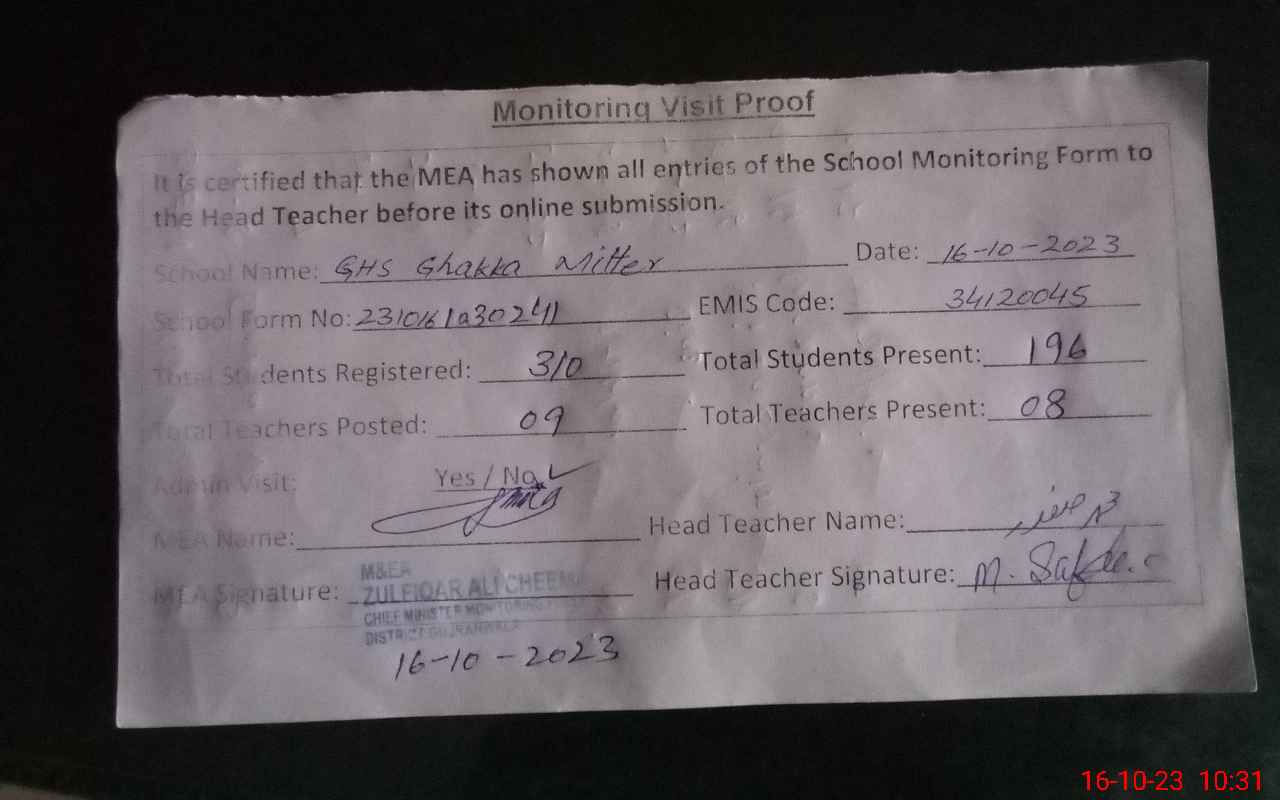 Monitoring Visit Proof
It is certified that the MEA has shown all entries of the School Monitoring Form to
the Head Teacher before its online submission.
School Name: GHS Ghakka Mitter Date: 16-10-2023
School Form No: EMIS Code: 34120045
Total Students Registered: 310 Total Students Present: 196
Total Teachers Posted: 09 Total Teachers Present: 08
Admin Visit: Yes / No ✓
MEA Name: Head Teacher Name:
MEA Signature: Head Teacher Signature: M. Safdar
M&EA
ZULFIQAR ALI CHEEMA
CHIEF MINISTER MONITORING
DISTRICT GUJRANWALA
16-10-2023
16-10-23 10:31